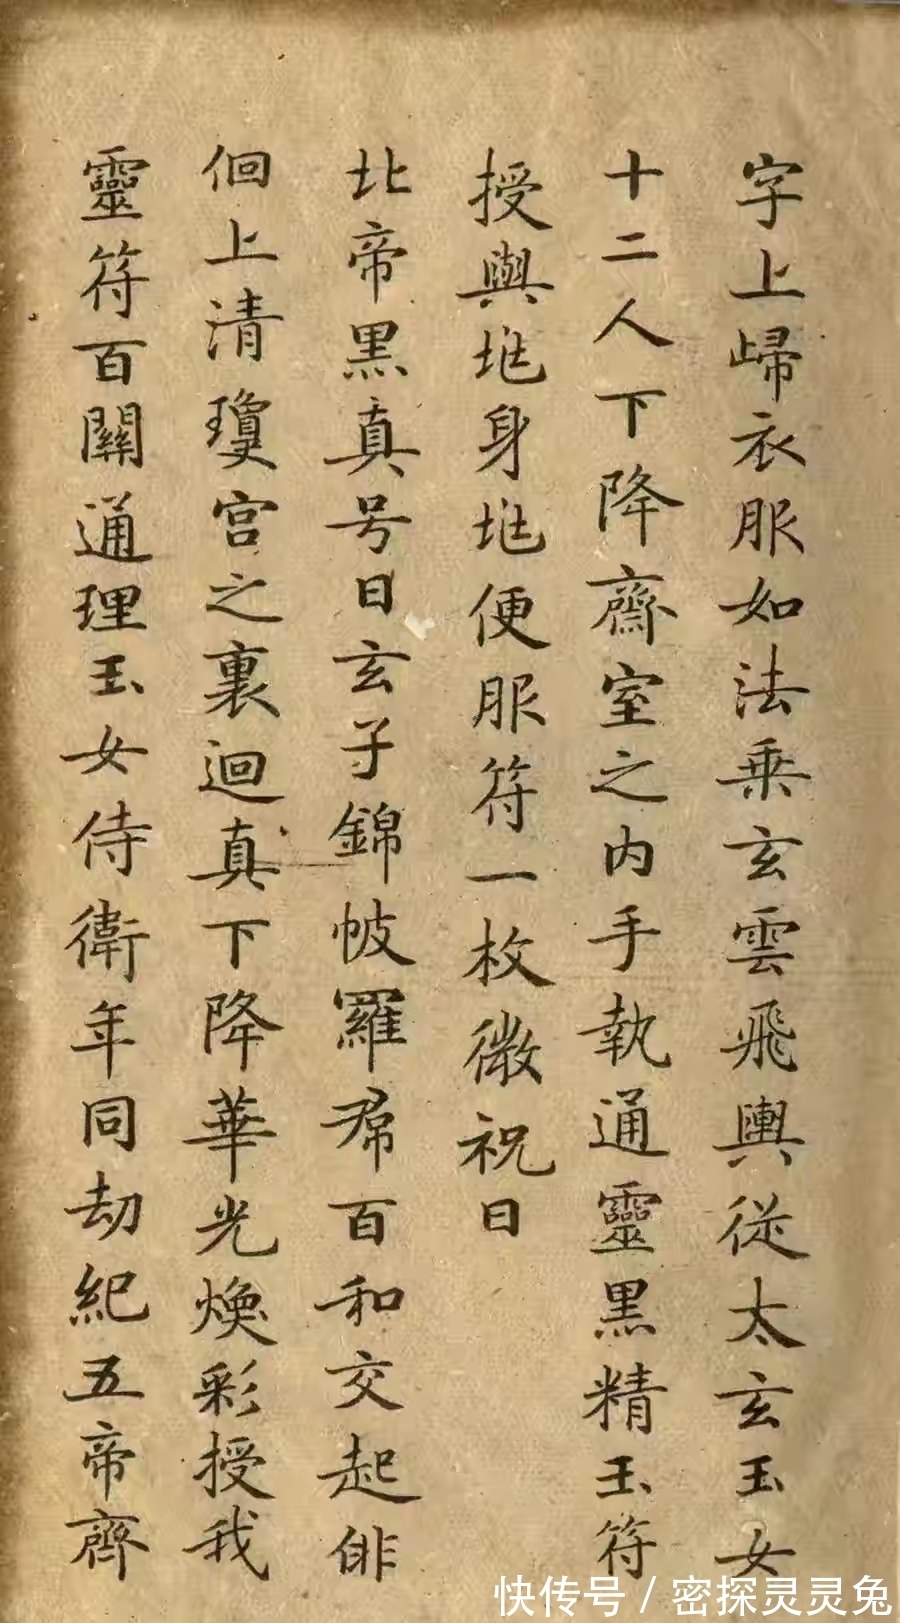 字上歸衣服如法乘玄雲飛輿從太玄玉女
十二人下降齋室之內手執通靈黑精玉符
授與兆身兆便服符一枚微祝曰
北帝黑真号曰玄子錦帔羅帬百和交起俳
佪上清瓊宮之裏迴真下降華光煥彩授我
靈符百關通理玉女侍衛年同劫紀五帝齊
快传号/密探灵灵兔